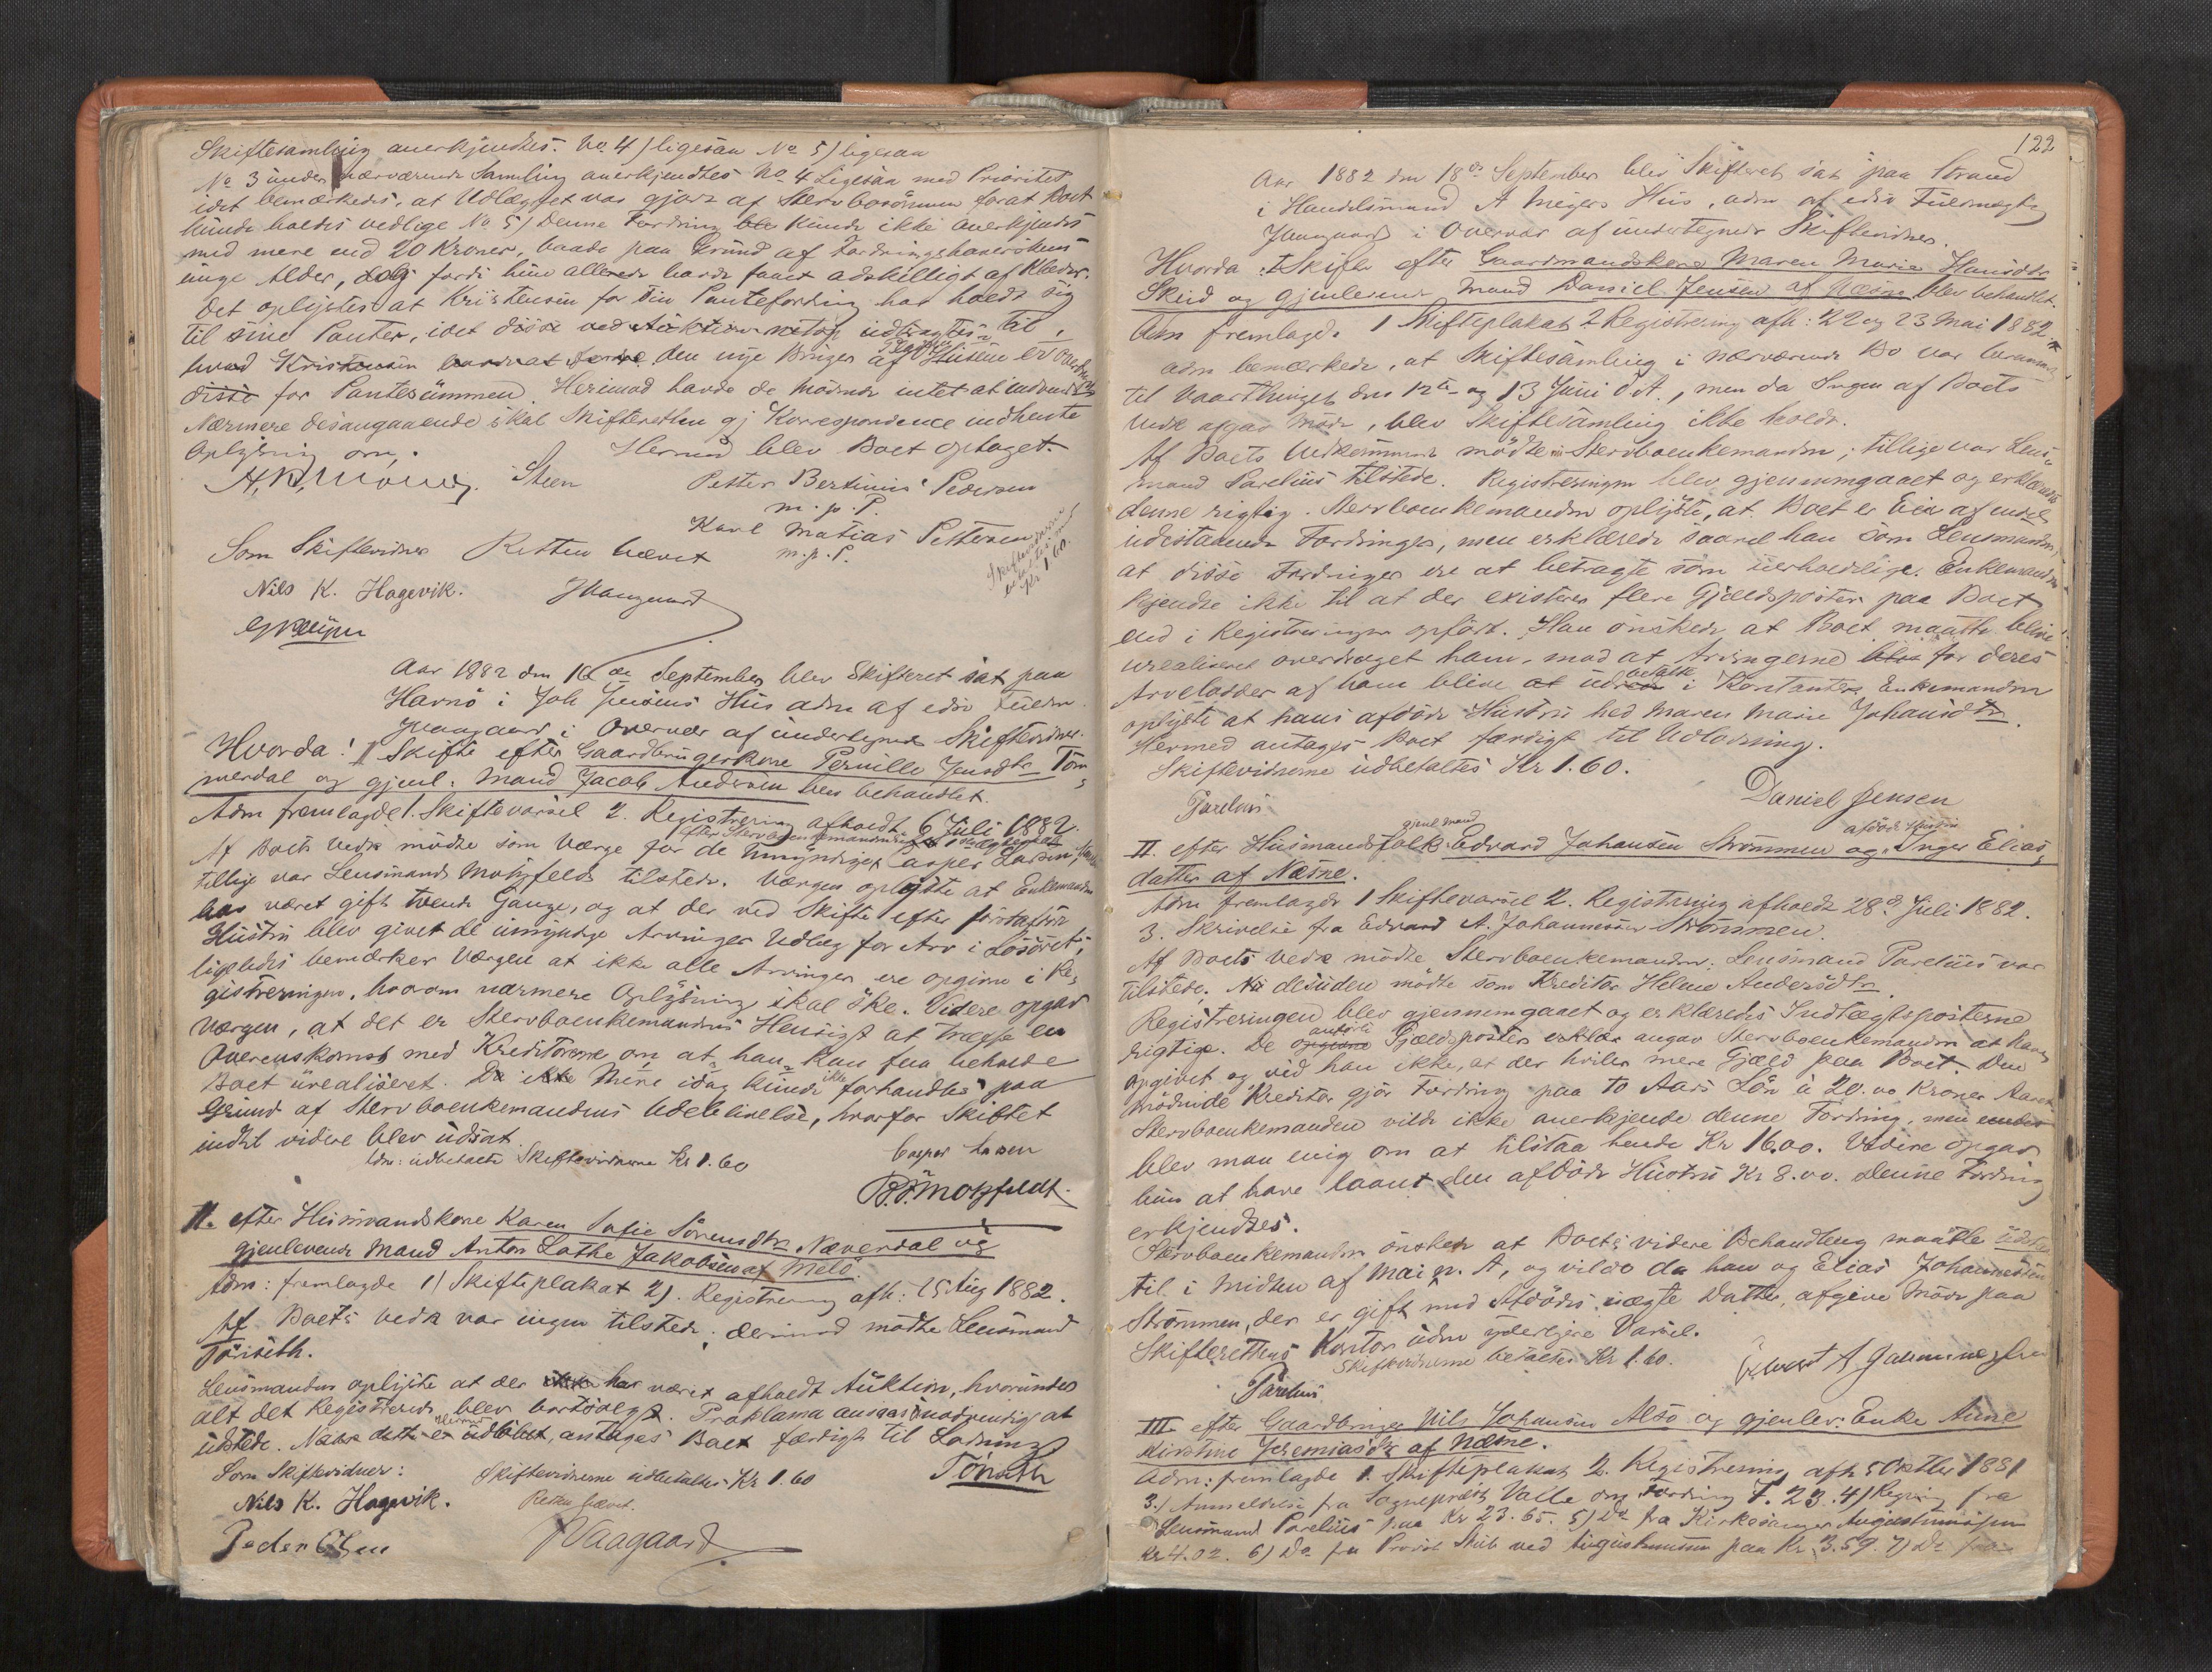 Skiftesamling anerkjendtes. No 4) ligesaa No 5) ligesaa
No 3 under nærværende Samling anerkjendtes No 4 Ligesaa med Prioritet
idet bemærkedes, at Udlægget var gjort af Stervbosönnen forat Boet
kunde holdes vedlige No 5) Denne Fordring ble kunde ikke anerkjendes
med mere end 20 Kroner, baade paa Grund af Fordringshaverskens
unge Alder, og fordi hun allerede havde faaet adskilligt af Klæder.
Det oplystes at Kristensen for sin Pantefordring har holdt sig
til sine Panter, idet disse ved Auktion netop udbragtes til
hvad Kristensen den nye Bruger af Husene er
disse for Pantesummen. Herimod havde de Mødende intet at indvende
Nærmere desangaaende skal Skifteretten gj Korrespondence indhente
Oplysning om. Hermed blev Boet optaget.
Steen Petter Bertinius Pedersen
m. p. P.
Karl Matias Pettersen
m. p. P.
Skiftevidnerne
betaltes med
Kr 1.60.
Som Skiftevidner Retten hævet
Nils K. Hagevik. JVaagaard
Aar 1882 den 16de September blev Skifteret sat paa
Havnö i Joh Jensens Hus adm af edsv Fuldm.
JVaagaard i Overvær af undertegnede Skiftevidner.
Hvorda! I Skifte efter Gaardbrugerkone Pernille Jensdtr Tom
merdal og gjenl. Mand Jacob Andersen blev behandlet.
Adm fremlagde 1. Skiftevarsel 2. Registrering afholdt 6 Juli 1882.
Af Boets Vedk mødte som Værge for de Umyndige Casper Larsen,
tillige var Lensmand Motzfeldt tilstede. Værgen oplyste at Enkemanden
har været gift tvende Gange, og at der ved Skifte efter første afdøde
Hustru blev givet de umyndige Arvinger Udlæg for Arv i Løsøret;
ligeledes bemærker Værgen at ikke alle Arvinger ere opgivne i Re-
gistreringen, hvorom nærmere Oplysning skal ske. Videre opgav
Værgen, at det er Stervboenkemandens Hensigt at træffe en
Overenskomst med Kreditorerne om at han kan faa beholde
Boet urealiseret. Da ikke Mere idag kunde forhandles paa
Grund af Stervboenkemandens Udeblivelse, hvorfor Skiftet
indtil videre blev udsat.
Adm: udbetalte Skiftevidnerne Kr 1.60 Casper Larsen
Motzfeldt.
II. efter Husmandskone Karen Sofie Sörensdtr Næverdal og
gjenlevende Mand Anton Lathe Jakobsen af Melö.
Adm: fremlagde 1) Skifteplakat 2). Registrering afh: 15 Aug 1882.
Af Boets Vedk var ingen tilstede. derimod mødte Lensmand
Tönseth.
Lensmanden oplyste at der har været afholdt Auktion, hvorunder
alt det Registrerede blev bortsolgt. Proklama ansaas unødvendigt at
udstede. Naar dette er udløbet, antages Boet færdigt til Lodning
Som Skiftevidner: Skiftevidnerne udbetaltes Kr 1.60 Tönseth
Nils K. Hagevik. Retten hævet.
Peder Olsen JVaagaard
122
Aar 1882 den 18de September blev Skifteret sat paa Strand
i Handelsmand A Meyers Hus, adm af edsv Fuldmægtig
JVaagaard i Overvær af undertegnede Skiftevidner.
Hvorda: I Skifte efter Gaardmandskone Maren Marie Hansdtr
Skeid og gjenlevende Mand Daniel Jensen af Næsne blev behandlet.
Adm fremlagde 1 Skifteplakat 2 Registrering afh: 22 og 23 Mai 1882.
Adm bemærkede, at Skiftesamling i nærværende Bo var berammet
til Vaarthinget den 12te og 13 Juni d. A., men da Ingen af Boets
Vedk afgav Møde, blev Skiftesamling ikke holdt.
Af Boets Vedkommende mödte Stervboenkemanden; tillige var Lens-
mand Parelius tilstede. Registreringen blev gjennemgaaet og erklæredes
denne rigtig. Stervboenkemanden oplyste, at Boet er Eier af endel
udestaaende Fordringer, men erklærede saavel han som Lensmanden,
at disse Fordringer ere at betragte som uerholdelige. Enkemanden
kjendte ikke til at der existerer flere Gjældsposter paa Boet
end i Registreringen opført. Han ønskede at Boet maatte blive
urealiseret overdraget ham, mod at Arvingerne for deres
Arvelodder af ham blive betalte i Kontanter. Enkemanden
oplyste at hans afdøde Hustru hed Maren Marie Johansdtr.
Hermed antages Boet færdigt til Udlodning.
Skiftevidnerne udbetaltes Kr 1.60.
Parelius Daniel Jensen
II. efter Husmandsfolk gjenl Mand Edvard Johansen Strømmen og afdøde Hustru Inger Elias-
datter af Næsne.
Adm fremlagde 1 Skiftevarsel 2. Registrering afholdt 28de Juli 1882.
3. Skrivelse fra Edvard A. Johannessen Strømmen.
Af Boets Vedk mødte Stervboenkemanden. Lensmand Parelius var
tilstede. desuden mødte som Kreditor Helene Andersdtr
Registreringen blev gjennemgaaet og erklæredes Indtægtsposterne
rigtige. De anførte Gjældsposter angav Stervboenkemanden at have
opgivet og ved han ikke, at der hviler mere Gjæld paa Boet. Den
mødende Kreditor gjør Fordring paa to Aars Løn à 20.00 Kroner Aaret
Stervboenkemanden vilde ikke anerkjende denne Fordring, men
blev man enig om at tilstaa hende Kr 16.00. Videre opgav
hun at have laant den afdøde Hustru Kr 8.00. Denne Fordring
erkjendtes.
Stervboenkemanden ønsker at Boets videre Behandling maatte udstaa
til i Midten af Mai n. A, og vilde da han og Elias Johannessen
Strømmen, der er gift med Afdødes uægte Datter, afgive Møde paa
Skifterettens Kontor uden yderligere Varsel.
Skiftevidnerne betaltes Kr 1.60.
Parelius
III. efter Gaardbruger Nils Johansen Alsö og gjenlev: Enke Anne
Kirstine Jeremiasdtr af Næsne.
Adm: fremlagde 1. Skifteplakat 2. Registrering afh 5 Oktbr 1881
3.) Anmeldelse fra Sogneprest Valle om Fordring F. 23. 4) Regning fra
Lensmand Parelius paa Kr 23.65. 5) Do fra Kirkesanger Augustinussen
Kr 4.02. 6) Do fra Provst Stub ved Augustinussen paa Kr 3.59. 7) Do fra